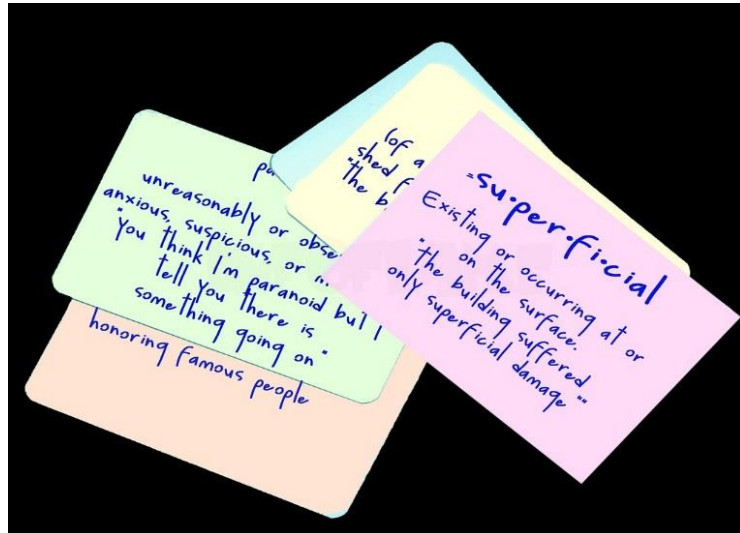 pa
unreasonably or obse
anxious, suspicious, or m
"You think I'm paranoid but I
tell you there is
something going on"
honoring famous people
(of a
shed f
"the b
"su·per·fi·cial
Existing or occurring at or
on the surface.
"the building suffered
only superficial damage""